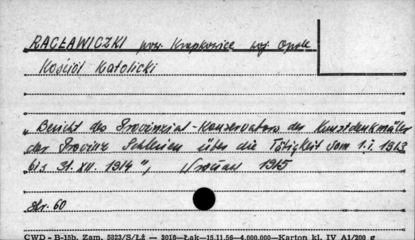 RACŁAWICZKI pow. Krapkowice woj. Opole
Kościół Katolicki
„Bericht des Provinzial-Konservators der Kunstdenkmäler
der Provinz Schlesien über die Tätigkeit vom 1.I.1913
bis 31.XII.1914", Wrocław 1915
str. 60
CWD - B-15b. Zam. 5823/S/Łź — 3018—Łak—15.11.56—4.000.000—Karton kl. IV A1/200 g